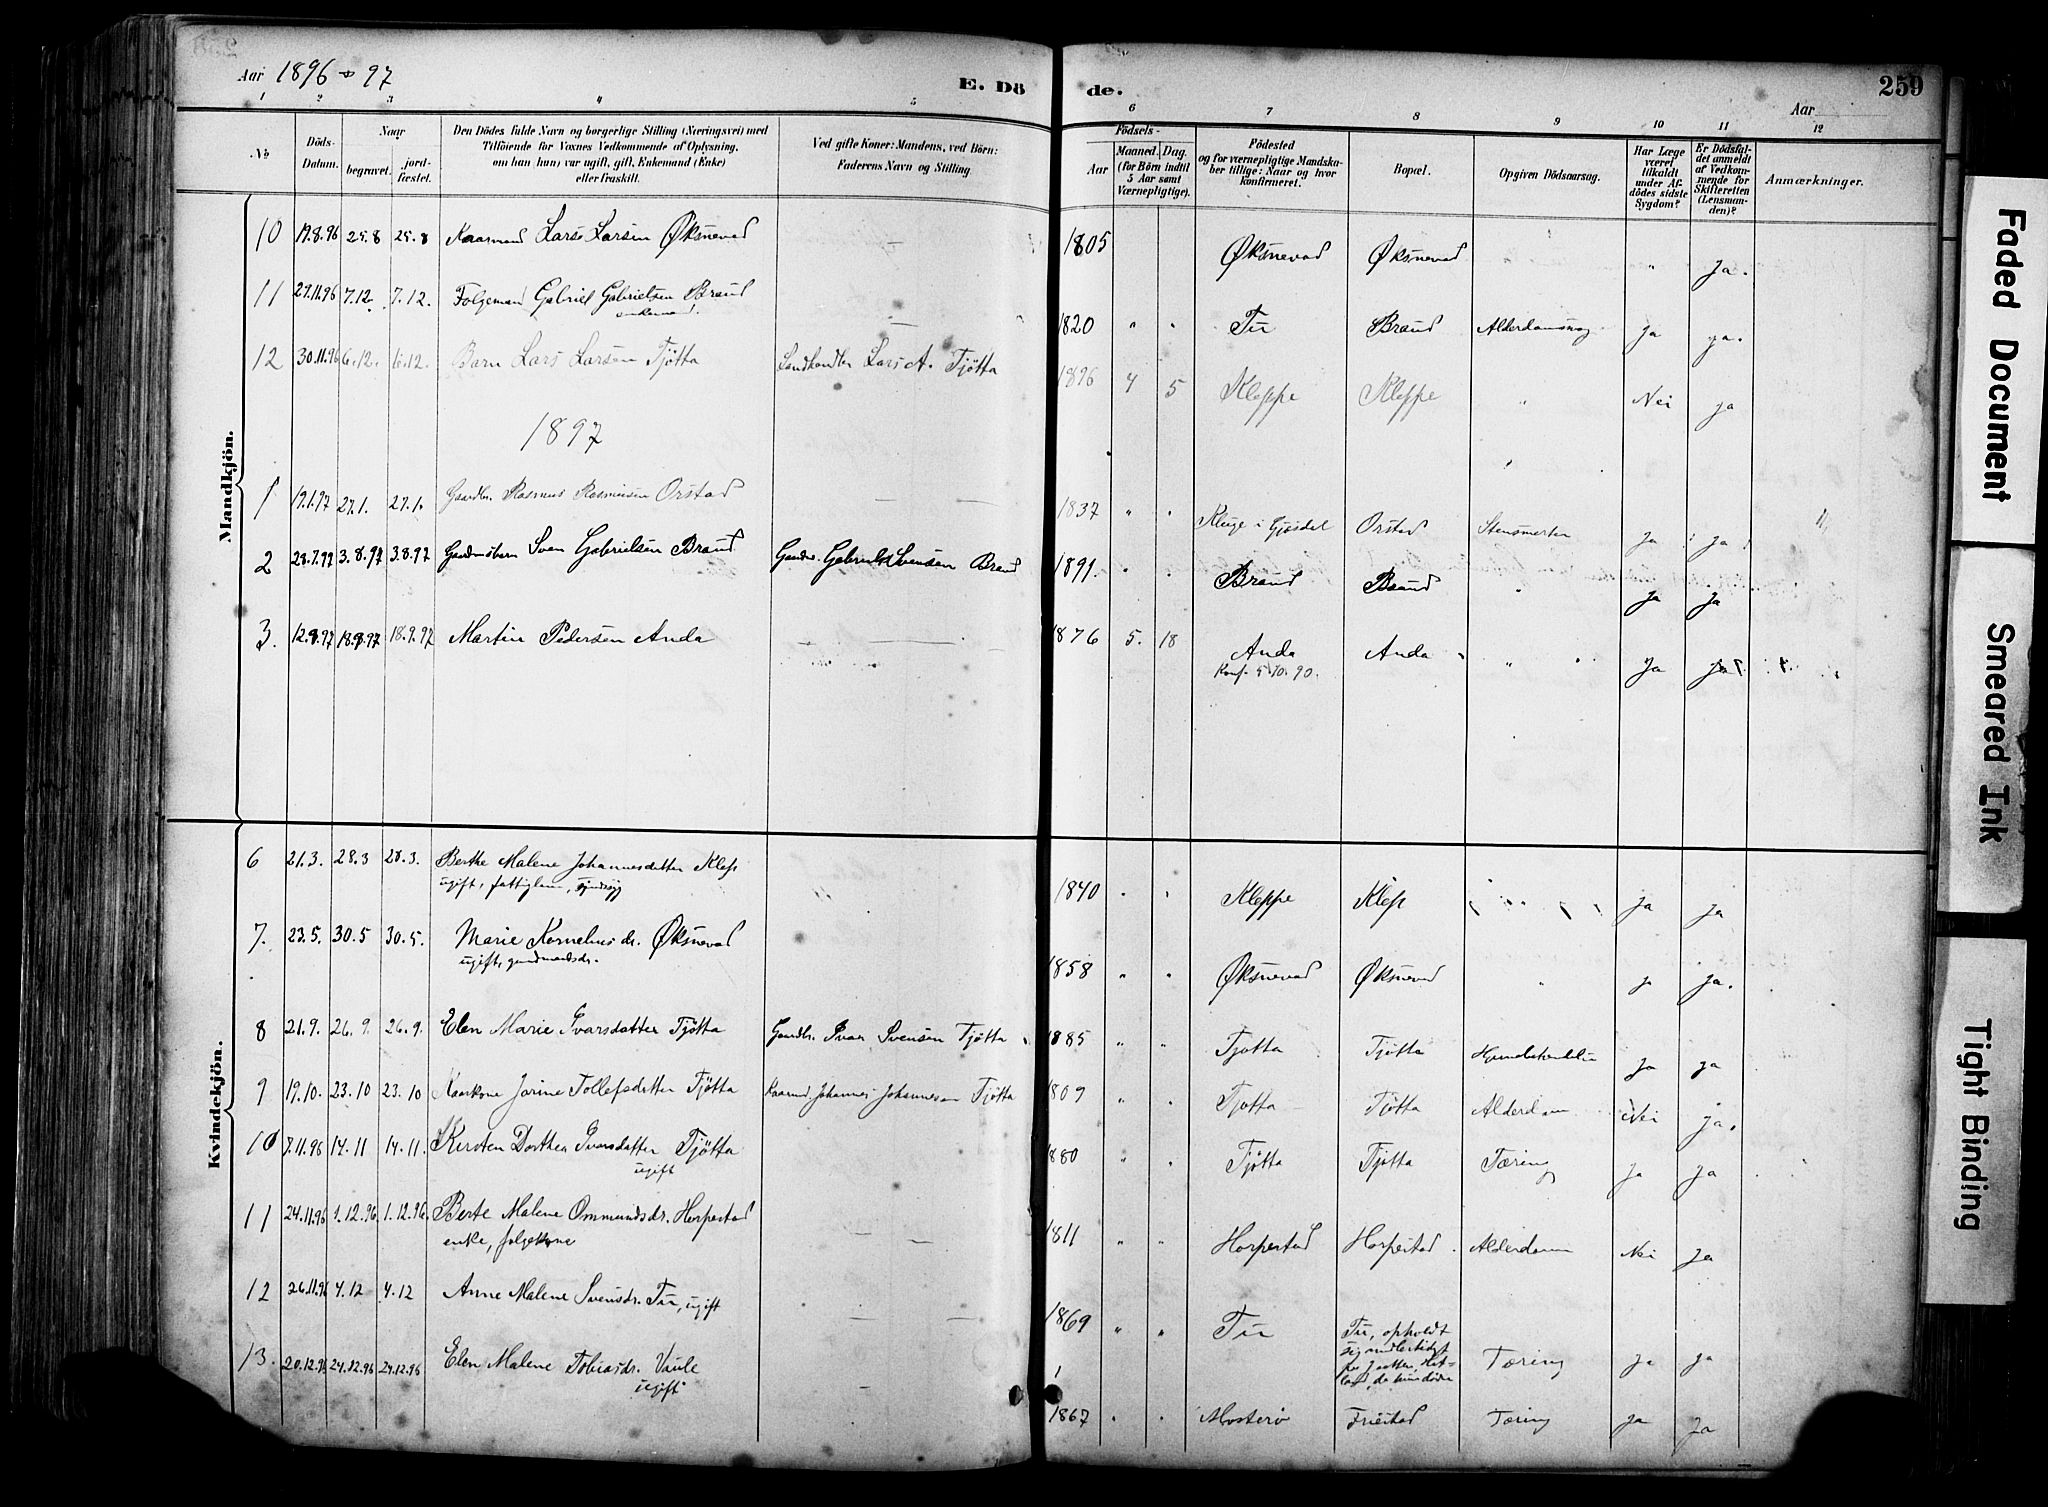 Aar 1896 97
E. Dö
de.
259
Aar
1 2 3 4 5 6 7 8 9 10 11 12
No
Döds-
Datum.
Naar
begravet.
jord-
fæstet.
Den Dödes fulde Navn og borgerlige Stilling (Næringsvei) med
Tilföiende for Voxnes Vedkommende af Oplysning,
om han (hun) var ugift, gift, Enkemand (Enke)
eller fraskilt.
Ved gifte Koner: Mandens, ved Börn:
Faderens Navn og Stilling
Födsels-
Aar
Maaned. Dag.
(for Börn indtil
5 Aar samt
Værnepligtige).
Födested
og for værnepligtige Mandska-
ber tillige: Naar og hvor
konfirmeret.
Bopæl.
Opgiven Dödsaarsag.
Har Læge
været
tilkaldt
under Af-
dödes sidste
Sygdom?
Er Dödsfal-
det anmeldt
af Vedkom-
mende for
Skifteretten
(Lensman-
den)?
Anmærkninger.
Mandkjön.
10 19.8.96 25.8 25.8 Kaarmand Lars Larsen Øksnevad 1805 Øksnevad Øksnevad " Ja.
11 27.11.96 7.12. 7.12. Folgemand Gabriel Gabrielsen Braud 1820 " " Tu Braud Alderdomssvag Ja ja.
enkemand.
12 30.11.96 6.12. 6.12. Barn Lars Larsen Tjøtta Landhandler Lars A. Tjøtta 1896 4 5 Kleppe Kleppe " Nei ja
1897
1 19.1.97 27.1. 27.1. Gaardbr. Rasmus Rasmussen Orstad 1837 " " Kluge i Gjæsdal Orstad Stensmerter Ja Ja
2 28.7.97 3.8.97 3.8.97 Gaardmsbarn Sven Gabrielsen Braud Gaardbr. Gabriel Svensen Braud 1891. " " Braud Braud " Ja Ja
3. 12.9.97 18.9.97 18.9.97 Martin Pedersen Anda 1876 5. 18 Anda Anda " Ja Ja
Konf. 5.10.90.
Kvindekjön.
6 21.3. 28.3 28.3. Berthe Malene Johannesdatter Klep 1840 " " Kleppe Klep Ja Ja
ugift, fattiglem,
7. 23.5. 30.5 30.5. Marie Kornelius dr. Øksnevad 1858 " " Øksnevad Øksnevad " Ja Ja.
ugift, gaardmandsdr.
8 21.9. 26.9. 26.9. Elen Marie Ivarsdatter Tjøtta Gaardbr. Ivar Svensen Tjøtta 1885 " " Tjøtta Tjøtta Ja Ja
9 19.10. 23.10 23.10 Kaarkone Jorine Tollefsdatter Tjøtta Kaarmd. Johannes Johannesen Tjøtta 1809 " " Tjøtta Tjøtta Alderdom Nei ja.
10 7.11.96 14.11 14.11. Kirsten Dorthea Ivarsdatter Tjøtta 1880 " " Tjøtta Tjøtta Tæring Ja Ja
ugift
11 24.11.96 1.12.96 1.12.96. Berte Malene Ommundsdr. Horpestad 1811 " " Horpestad Horpestad. Alderdom Nei Ja
enke, folgekone
12 26.11.96 4.12 4.12 Anne Malene Svensdr. Tu, ugift 1869 " " Tu Tu, opholdt Tæring Ja Ja
sig midlertidigt
paa Jaatten, Het-
land, da hun døde
13. 20.12.96 24.12.96 24.12.96 Elen Malene Tobiasdr. Vaule 1867 " " Mosterø Friestad Tæring Ja Ja
ugift
Faded Document
Smeared Ink
Tight Binding